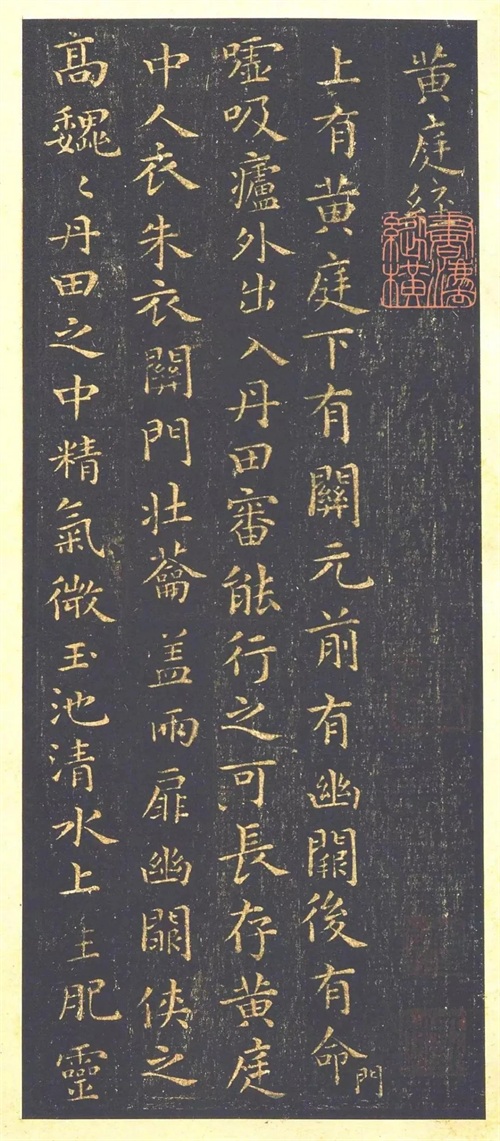 黄庭經
上有黄庭下有關元前有幽闕後有命門
嘘吸廬外出入丹田審能行之可長存黄庭
中人衣朱衣關門壯蘥盖兩扉幽闕俠之
髙魏〻丹田之中精氣微玉池清水上生肥靈